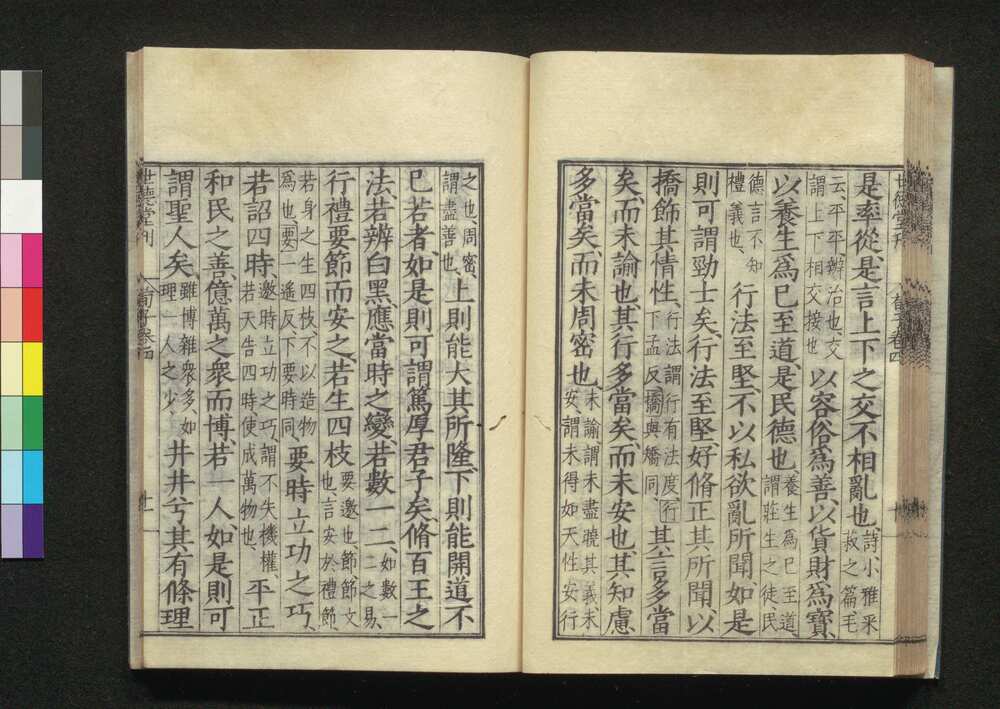 是率從是言上下之交不相亂也詩小雅采菽之篇毛
云平平辨治也交謂上下相交接也以容俗爲善以貨財爲寶
以養生爲已至道是民德也養生爲已至道謂莊生之徒民
德言不知禮義也行法至堅不以私欲亂所聞如是
則可謂勁士矣行法至堅好脩正其所聞以
橋飾其情性行法謂行有法度行下孟反橋與矯同其言多當
矣而未諭也其行多當矣而未安也其知慮
多當矣而未周密也未諭謂未盡曉其義未安謂未得如天性安行
之也周密謂盡善也上則能大其所隆下則能開道不
已若者如是則可謂篤厚君子矣脩百王之
法若辨白黑應當時之變若數一二如數一二之易
行禮要節而安之若生四枝要邀也節節文也言安於禮節
若身之生四枝不以造物爲也要一遥反下要時同要時立功之巧
若詔四時邀時立功之巧謂不失機權若天告四時使成萬物也平正
和民之善億萬之衆而博若一人如是則可
謂聖人矣雖博雜衆多如理一人之少井井兮其有條理
世德堂刊
荀子卷四
世德堂刊
荀子卷四